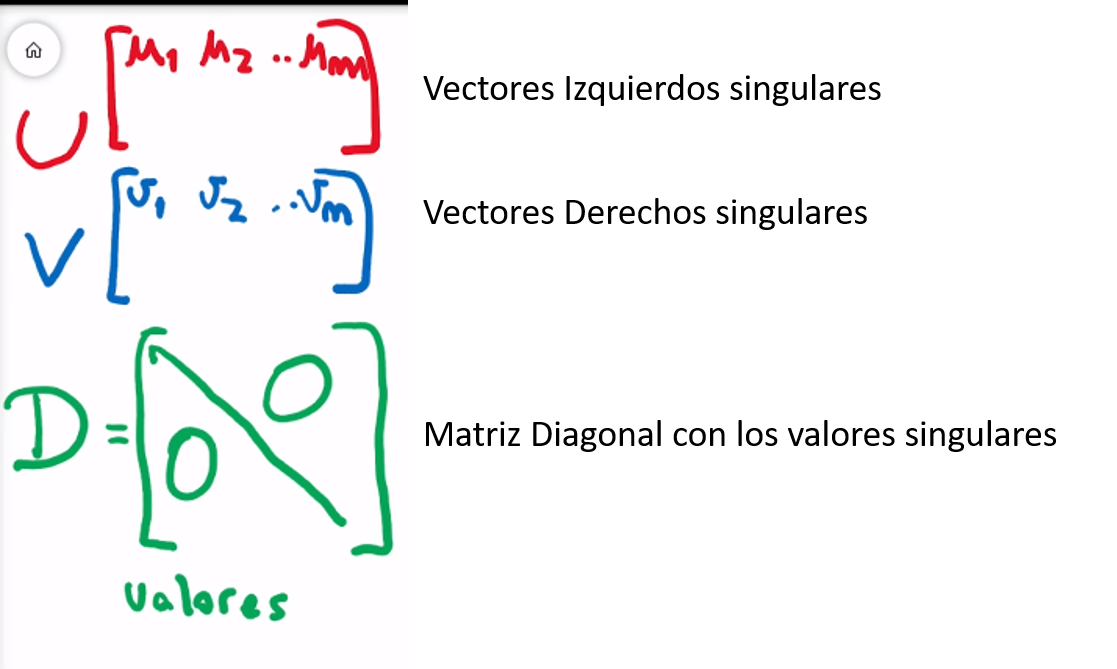 U [μ1 μ2 ..μm]
Vectores Izquierdos singulares
V [v1 v2 ...vm]
Vectores Derechos singulares
D = [0 0]
Matriz Diagonal con los valores singulares
valores